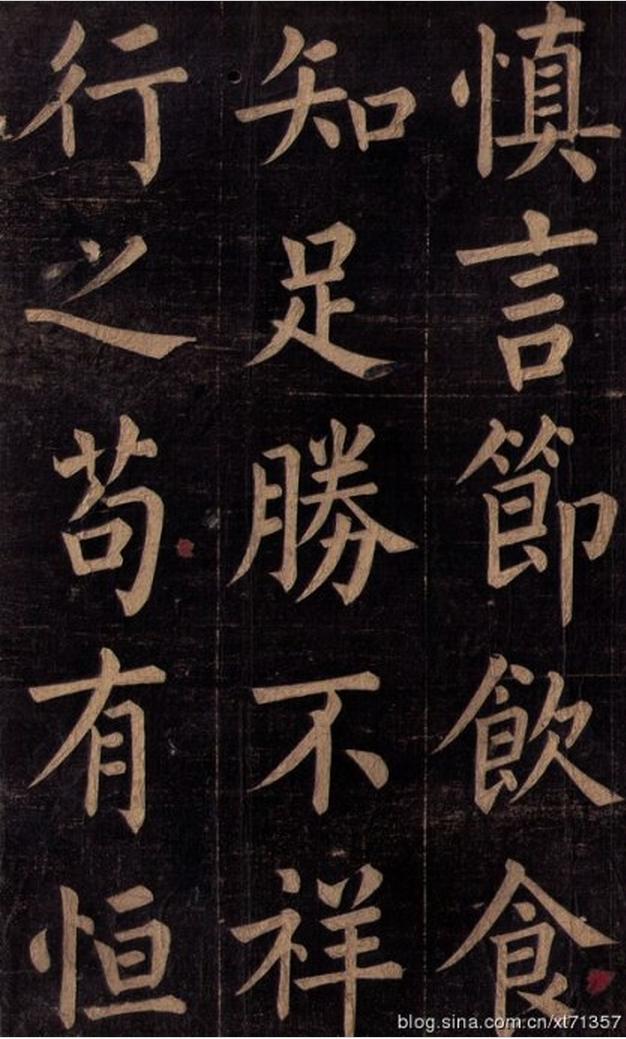 慎言節飲食
知足勝不祥
行之苟有恒
blog.sina.com.cn/xt71357